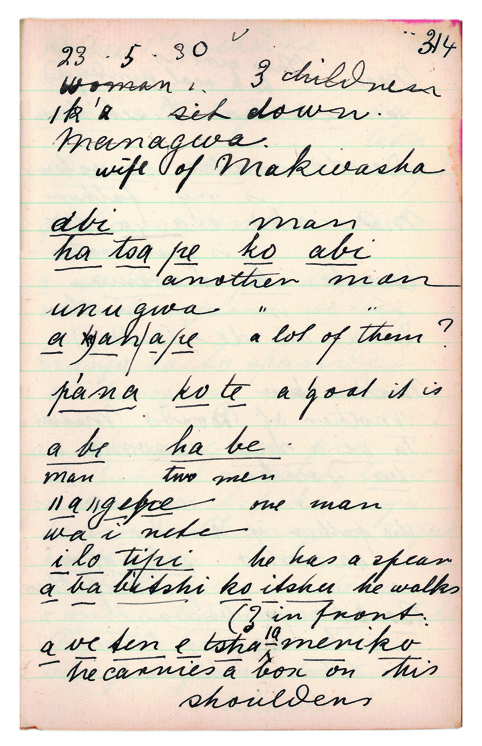 314
23 . 5 . 30
woman 1. 3 children
1k'a set down.
Managwa.
wife of Makiwasha
abi man
ha tsa pe ko abi
another man
unugwa " "
a an/a/pe a lot of them ?
p'ana ko te a goat it is
a be ha be .
man two men
one man
wa i nete
i lo tipi he has a spear
a ba bitshi ko itshu he walks
(3 in front.
a ve ten e tsha meriko
he carries a box on his
shoulders